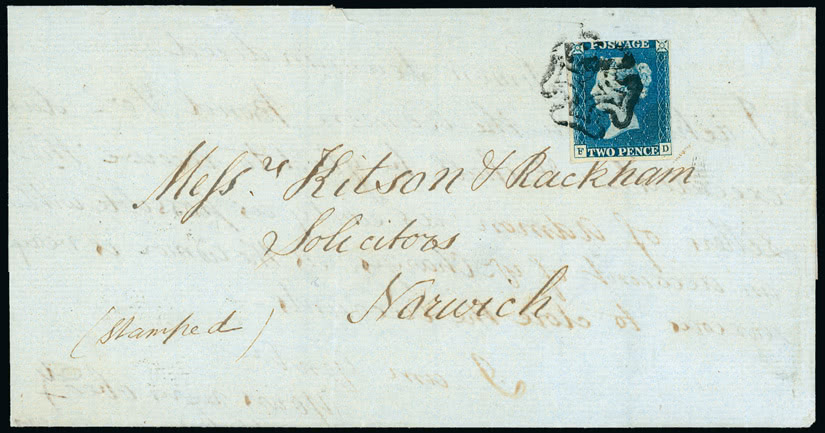 POSTAGE
F TWO PENCE D
Messrs Kitson & Rackham
Solicitors
Norwich
(Stamped)